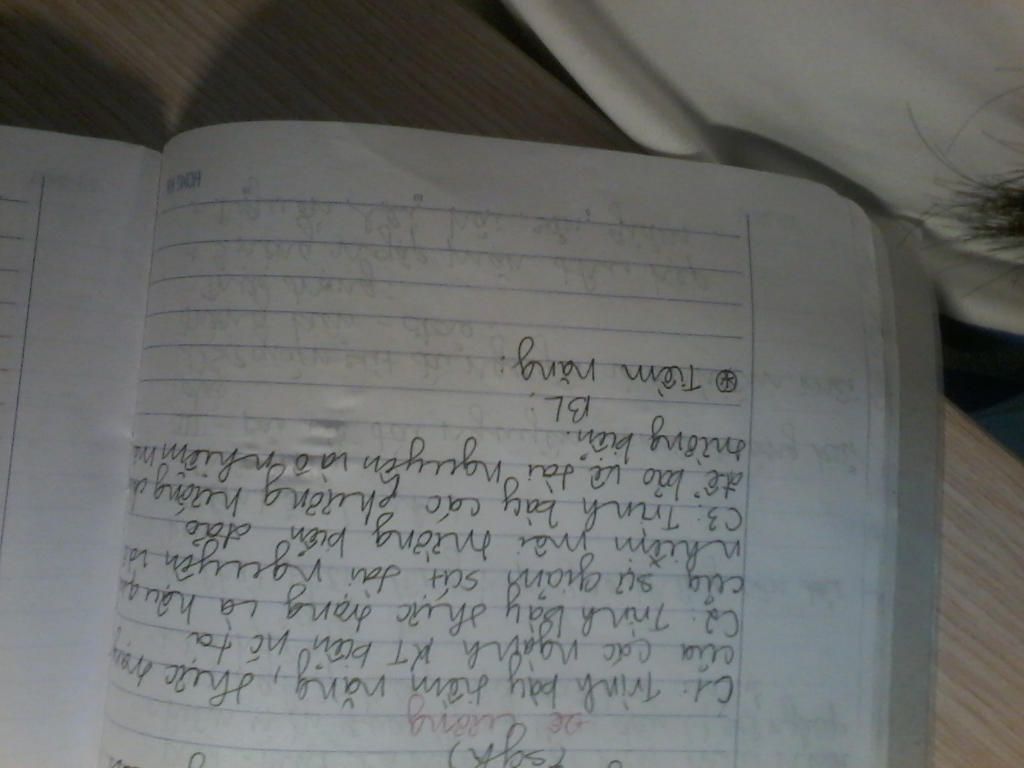 (sgk)
Đề cương
C1: Trình bày tiềm năng, thực trạng
của các ngành KT biển nc ta
C2: Trình bày thực trạng và hậu quả
của sự giảm sút tài nguyên và
nhiễm môi trường biển đảo
C3: Trình bày các phương hướng
để bảo vệ tài nguyên và ô nhiễm
trường biển.
BL
Tiềm năng: